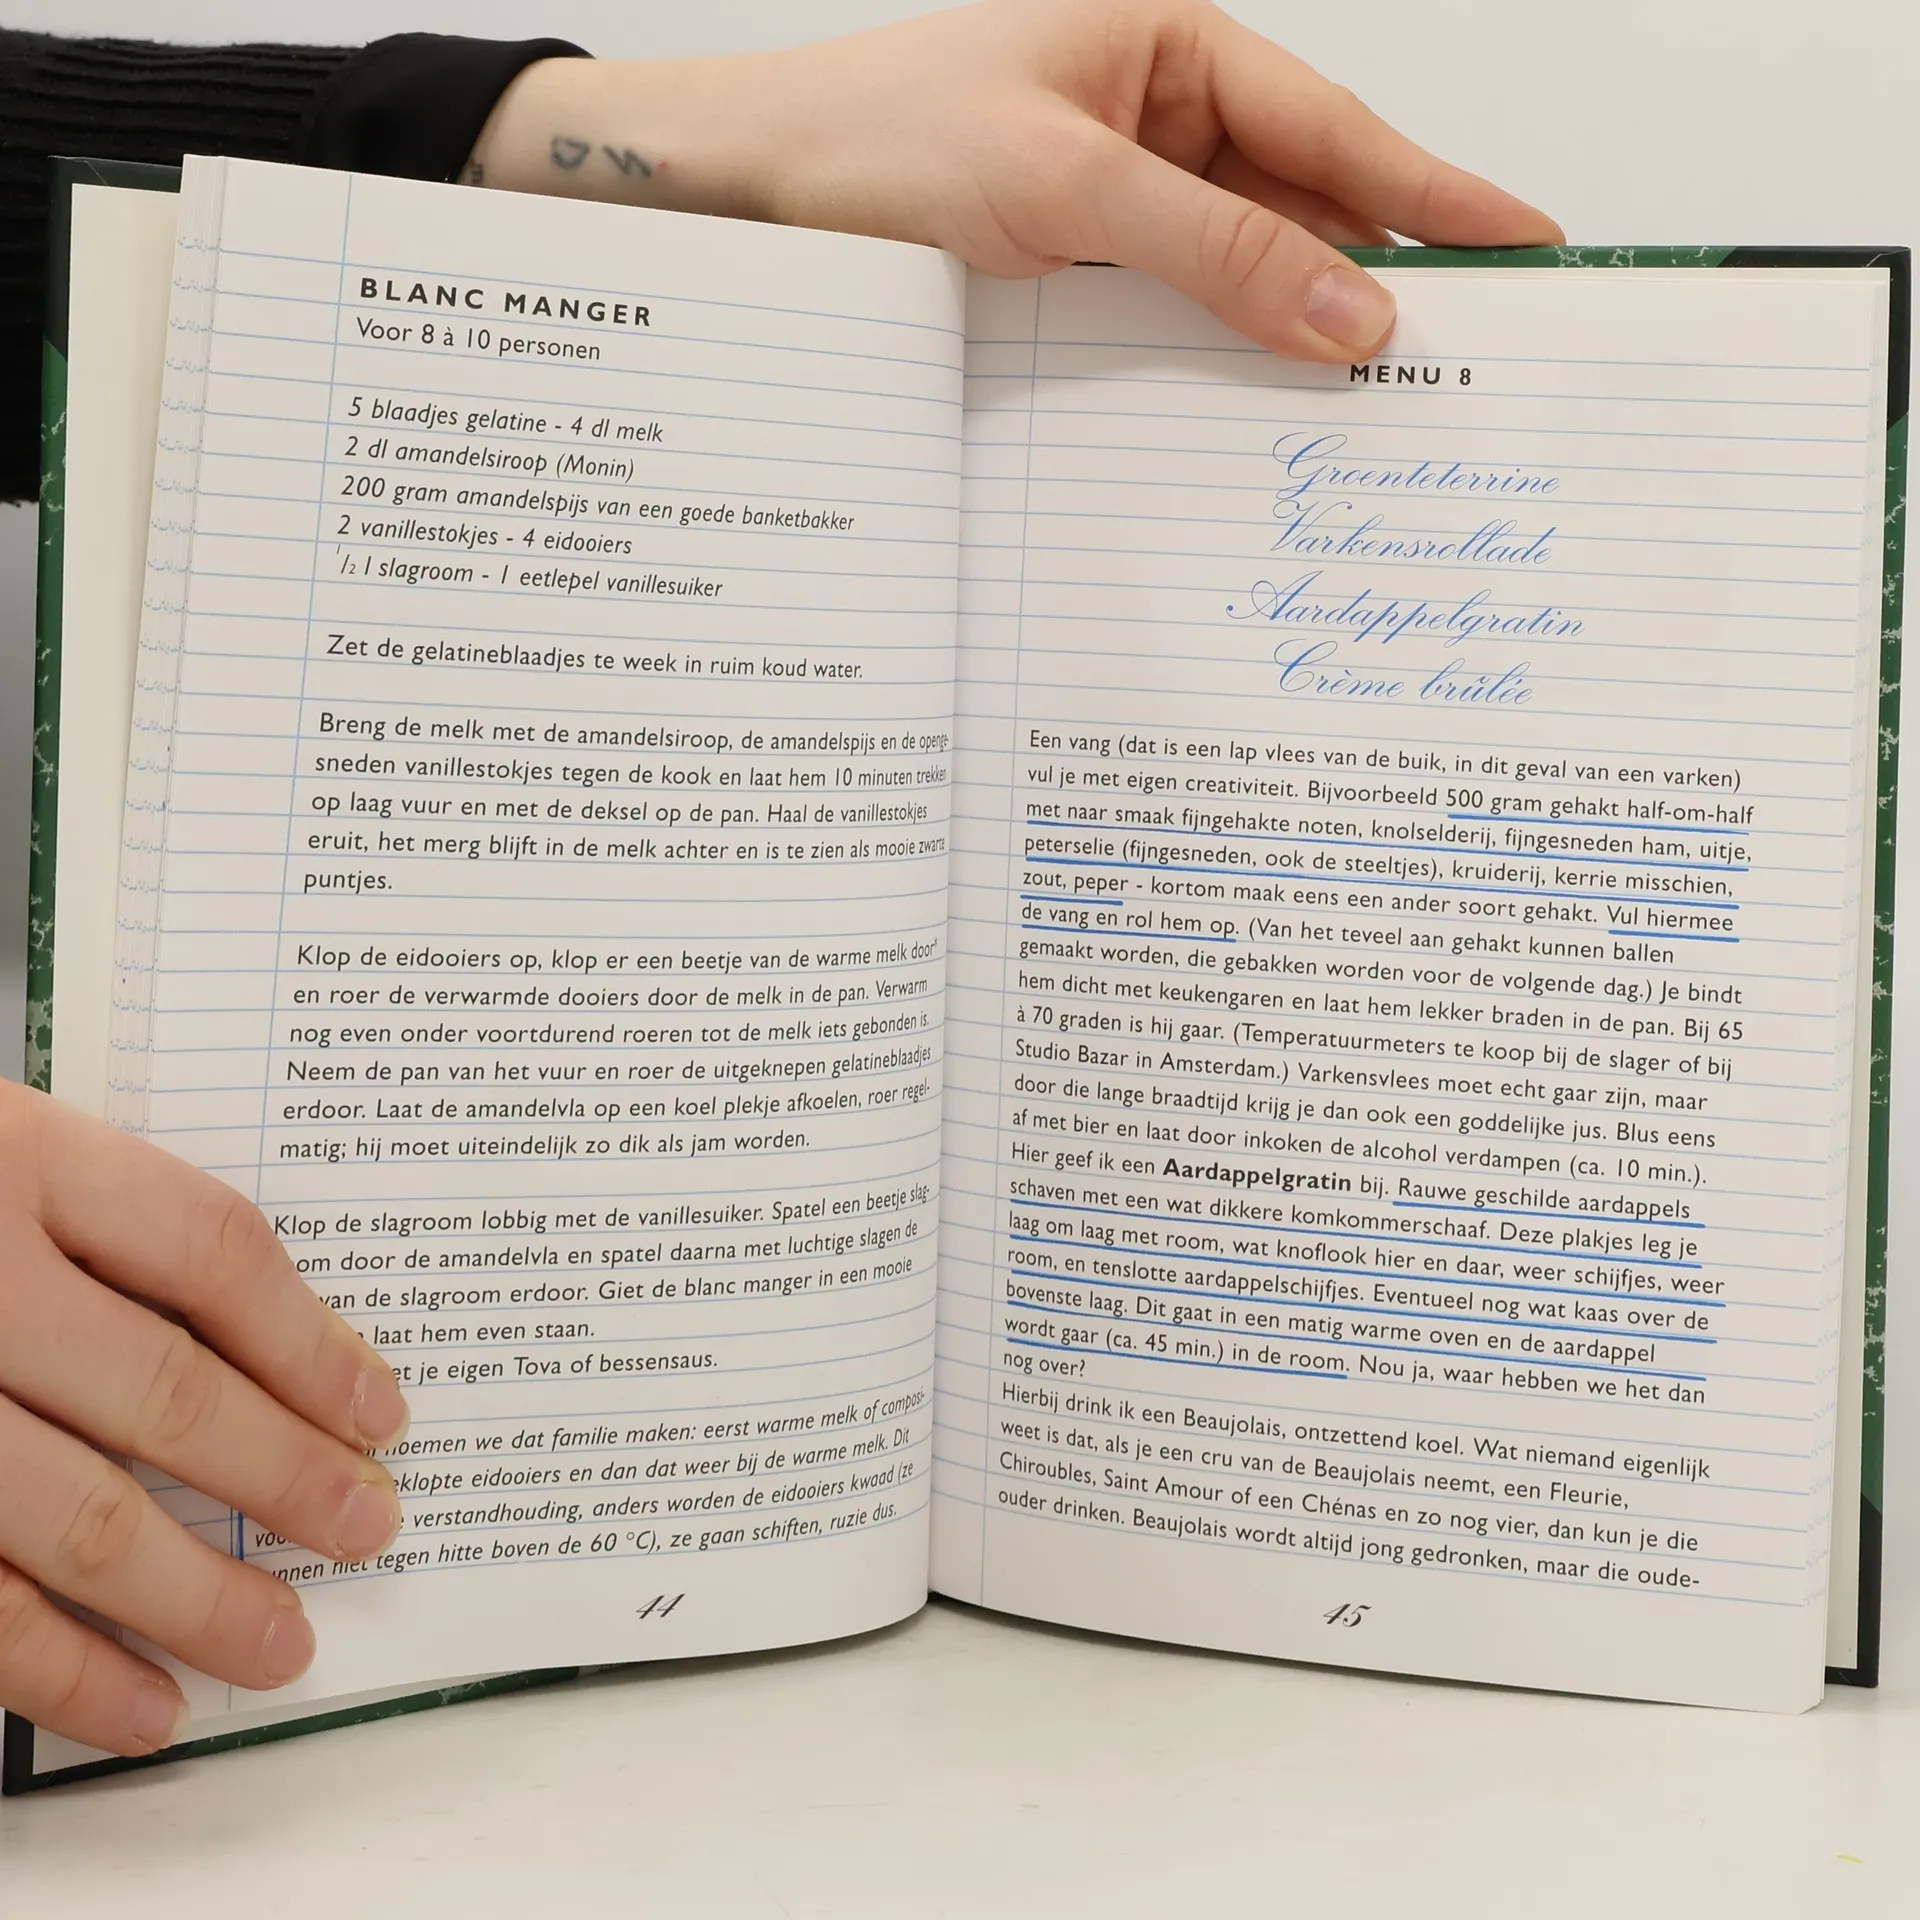 BLANC MANGER
Voor 8 à 10 personen
5 blaadjes gelatine - 4 dl melk
2 dl amandelsiroop (Monin)
200 gram amandelspijs van een goede banketbakker
2 vanillestokjes - 4 eidooiers
1/2 l slagroom - 1 eetlepel vanillesuiker
Zet de gelatineblaadjes te week in ruim koud water.
Breng de melk met de amandelsiroop, de amandelspijs en de openge-
sneden vanillestokjes tegen de kook en laat hem 10 minuten trekken
op laag vuur en met de deksel op de pan. Haal de vanillestokjes
eruit, het merg blijft in de melk achter en is te zien als mooie zwarte
puntjes.
Klop de eidooiers op, klop er een beetje van de warme melk door*
en roer de verwarmde dooiers door de melk in de pan. Verwarm
nog even onder voortdurend roeren tot de melk iets gebonden is.
Neem de pan van het vuur en roer de uitgeknepen gelatineblaadjes
erdoor. Laat de amandelvla op een koel plekje afkoelen, roer regel-
matig; hij moet uiteindelijk zo dik als jam worden.
Klop de slagroom lobbig met de vanillesuiker. Spatel een beetje slag-
om door de amandelvla en spatel daarna met luchtige slagen de
van de slagroom erdoor. Giet de blanc manger in een mooie
laat hem even staan.
et je eigen Tova of bessensaus.
noemen we dat familie maken: eerst warme melk of composi-
eklopte eidooiers en dan dat weer bij de warme melk. Dit
verstandhouding, anders worden de eidooiers kwaad (ze
nnen niet tegen hitte boven de 60 °C), ze gaan schiften, ruzie dus.
44
MENU 8
Groenteterrine
Varkensrollade
Aardappelgratin
Crème brûlée
Een vang (dat is een lap vlees van de buik, in dit geval van een varken)
vul je met eigen creativiteit. Bijvoorbeeld 500 gram gehakt half-om-half
met naar smaak fijngehakte noten, knolselderij, fijngesneden ham, uitje,
peterselie (fijngesneden, ook de steeltjes), kruiderij, kerrie misschien,
zout, peper - kortom maak eens een ander soort gehakt. Vul hiermee
de vang en rol hem op. (Van het teveel aan gehakt kunnen ballen
gemaakt worden, die gebakken worden voor de volgende dag.) Je bindt
hem dicht met keukengaren en laat hem lekker braden in de pan. Bij 65
à 70 graden is hij gaar. (Temperatuurmeters te koop bij de slager of bij
Studio Bazar in Amsterdam.) Varkensvlees moet echt gaar zijn, maar
door die lange braadtijd krijg je dan ook een goddelijke jus. Blus eens
af met bier en laat door inkoken de alcohol verdampen (ca. 10 min.).
Hier geef ik een Aardappelgratin bij. Rauwe geschilde aardappels
schaven met een wat dikkere komkommerschaaf. Deze plakjes leg je
laag om laag met room, wat knoflook hier en daar, weer schijfjes, weer
room, en tenslotte aardappelschijfjes. Eventueel nog wat kaas over de
bovenste laag. Dit gaat in een matig warme oven en de aardappel
wordt gaar (ca. 45 min.) in de room. Nou ja, waar hebben we het dan
nog over?
Hierbij drink ik een Beaujolais, ontzettend koel. Wat niemand eigenlijk
weet is dat, als je een cru van de Beaujolais neemt, een Fleurie,
Chiroubles, Saint Amour of een Chénas en zo nog vier, dan kun je die
ouder drinken. Beaujolais wordt altijd jong gedronken, maar die oude-
45